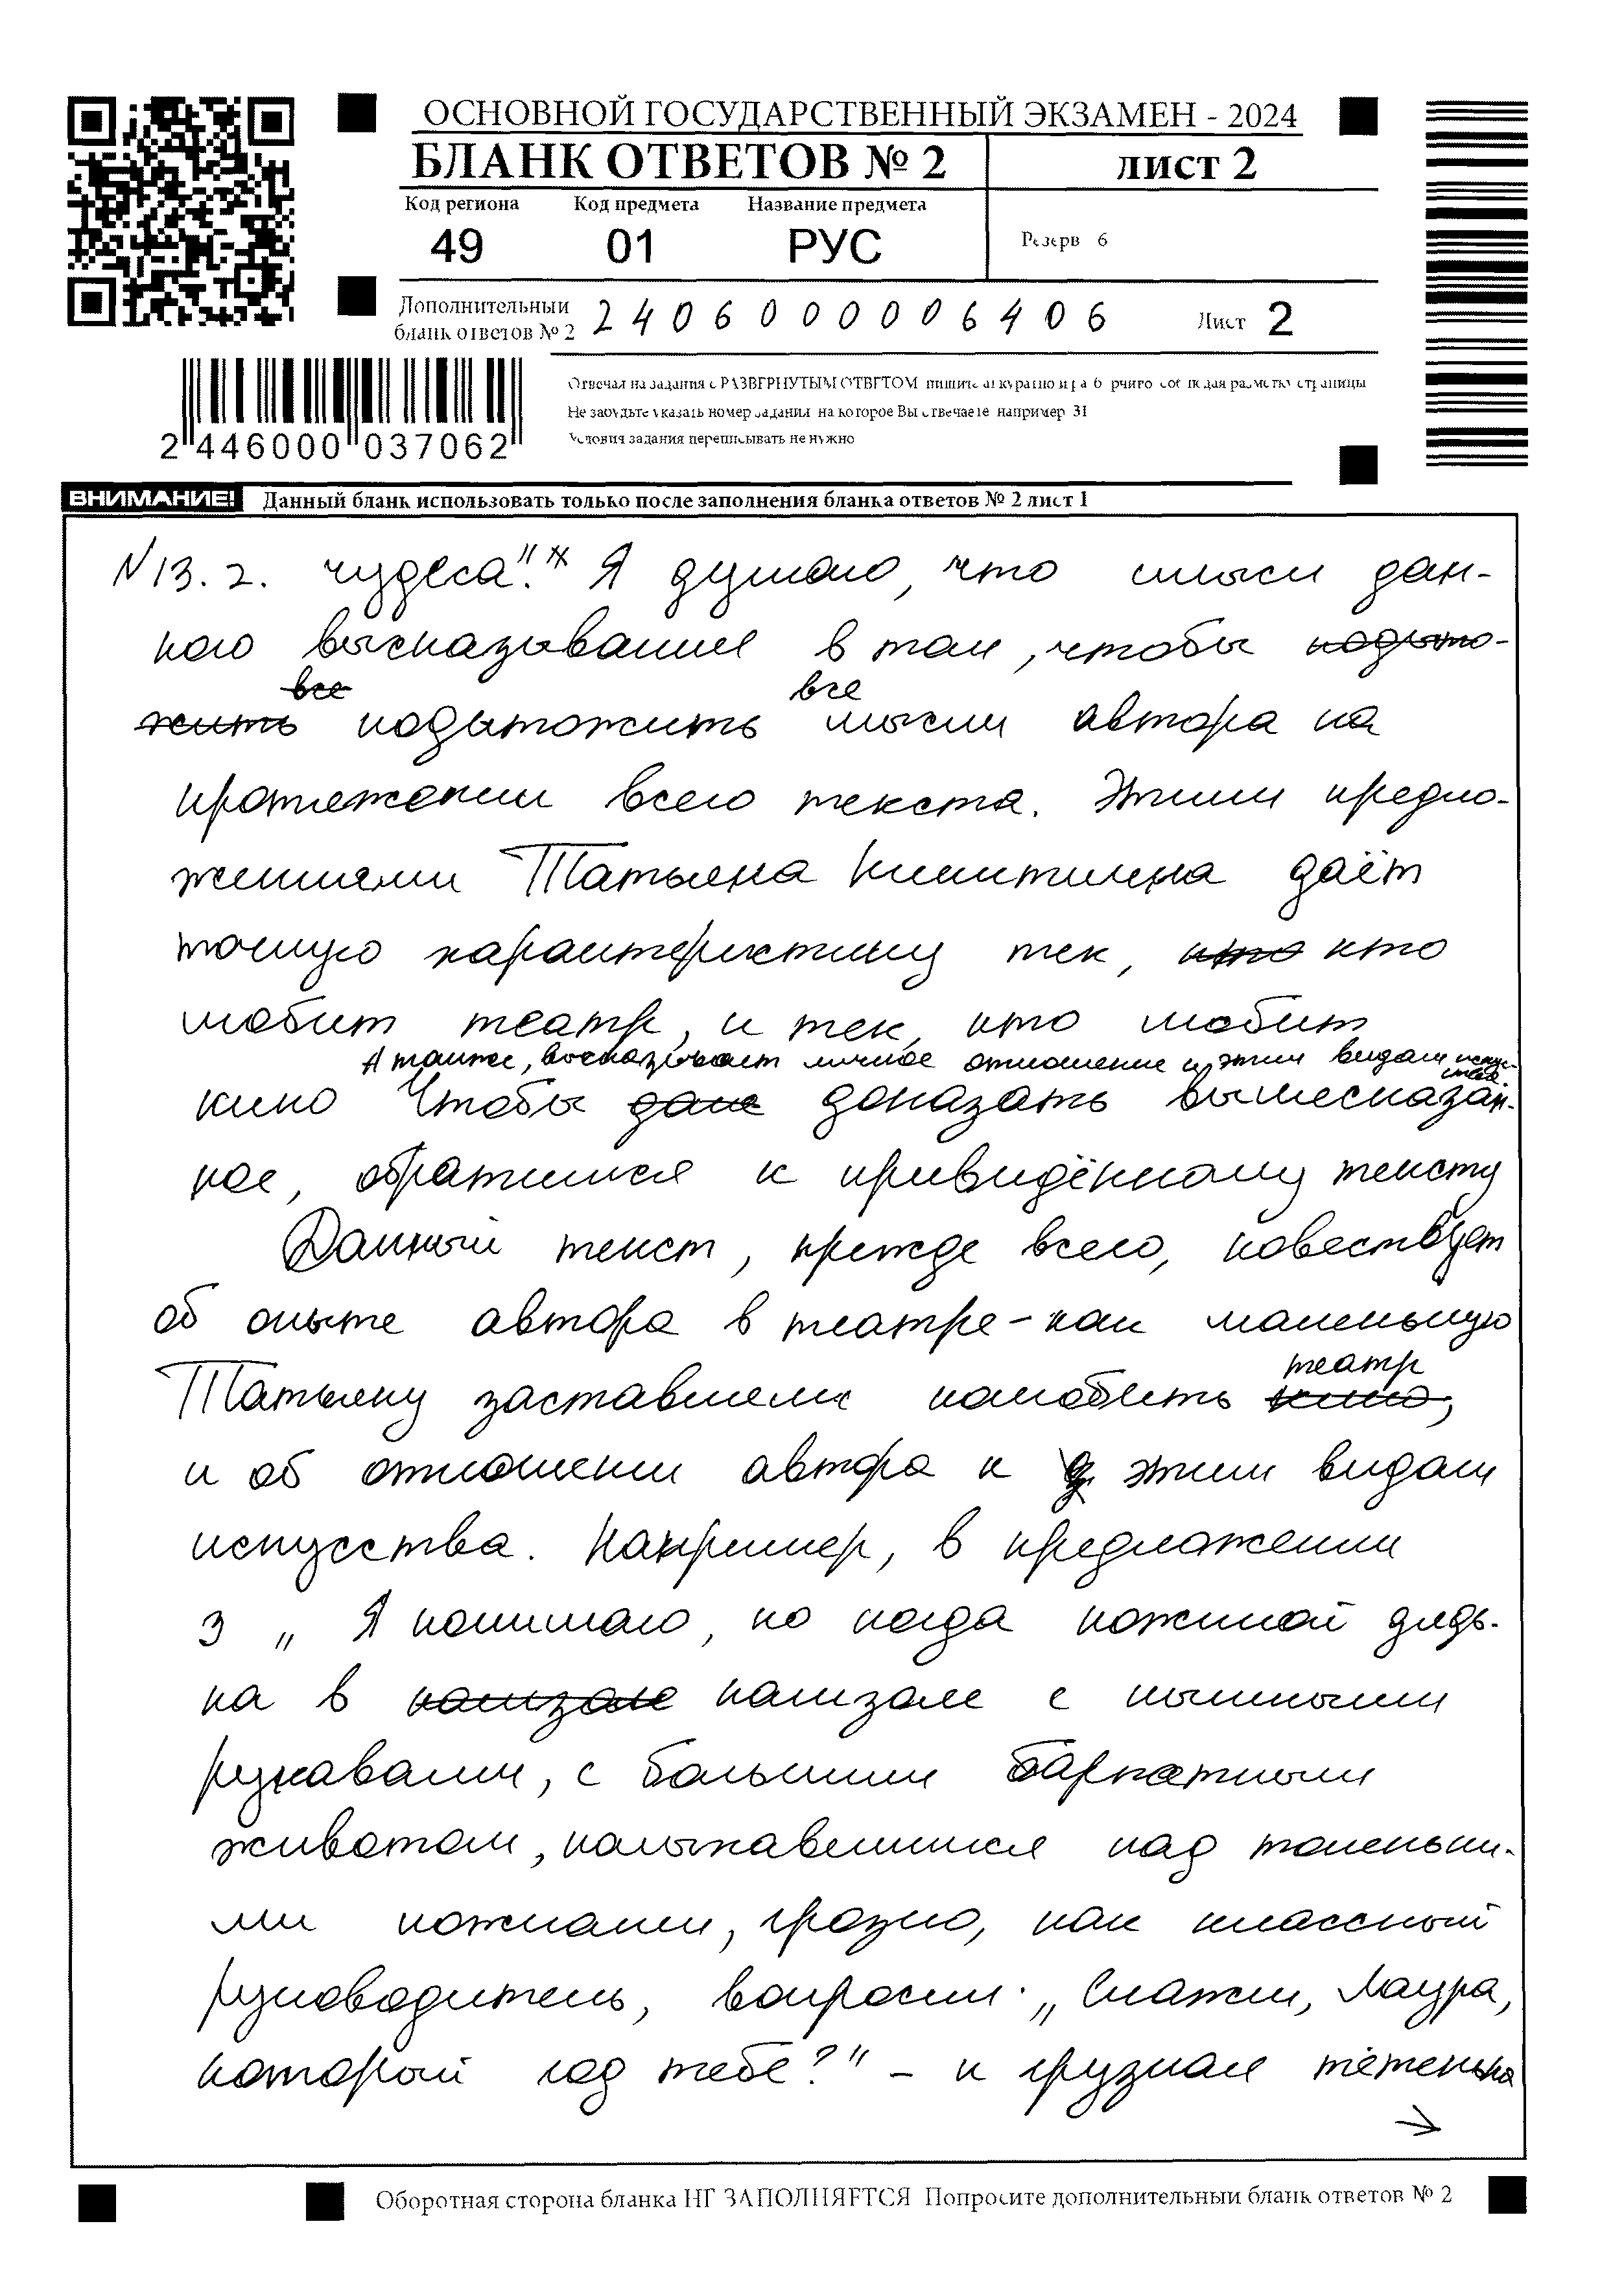 ОСНОВНОЙ ГОСУДАРСТВЕННЫЙ ЭКЗАМЕН - 2024
БЛАНК ОТВЕТОВ № 2
ЛИСТ 2
Код региона Код предмета Название предмета
49 01 РУС
Резерв 6
Дополнительный
бланк ответов № 2
2406000006406
Лист 2
2 446000 037062
Отвечая на задания с РАЗВЕРНУТЫМ ОТВЕТОМ пишите аккуратно и разборчиво соблюдая разметку страницы
Не забудьте указать номер задания на которое Вы отвечаете например 31
Условия задания переписывать не нужно
ВНИМАНИЕ! Данный бланк использовать только после заполнения бланка ответов № 2 лист 1
N13.2. чудеса."* Я думаю, что смысл дан-
ного высказывания в том, чтобы подыто-
жить все подытожить все мысли автора на
протяжении всего текста. Этими предло-
жениями Татьяна Никитична даёт
точную характеристику тех, кто кто
любит театр, и тех, кто любит
А также, высказывает личное отношение к этим видам искус-
ства.
кино Чтобы дока доказать вышесказан-
ное, обратимся к привидённому тексту
Данный текст, прежде всего, повествует
об опыте автора в театре - как маленькую
Татьяну заставляли полюбить кино театр,
и об отношении автора к этим видам
искусства. Например, в предложении
3 „Я понимаю, но когда пожилой дядь-
ка в камзоле камзоле с пышными
рукавами, с большим бархатным
животом, колыхавшимся над тоненьки-
ми ножками, грозно, как классный
руководитель, вопросил: „Скажи, Лаура,
который год тебе?" - и грузная тётенька
→
Оборотная сторона бланка НЕ ЗАПОЛНЯЕТСЯ Попросите дополнительный бланк ответов № 2